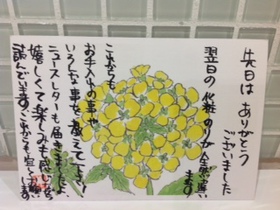 先日は ありがとう
ございました
翌日の 化粧のりが全然違い
ます
これからも
お手入れの事や
いろんな事を教えて下さい
ニュースレターも届きました
嬉しくて楽しみも感じながら
読んでます。これからも宜しく